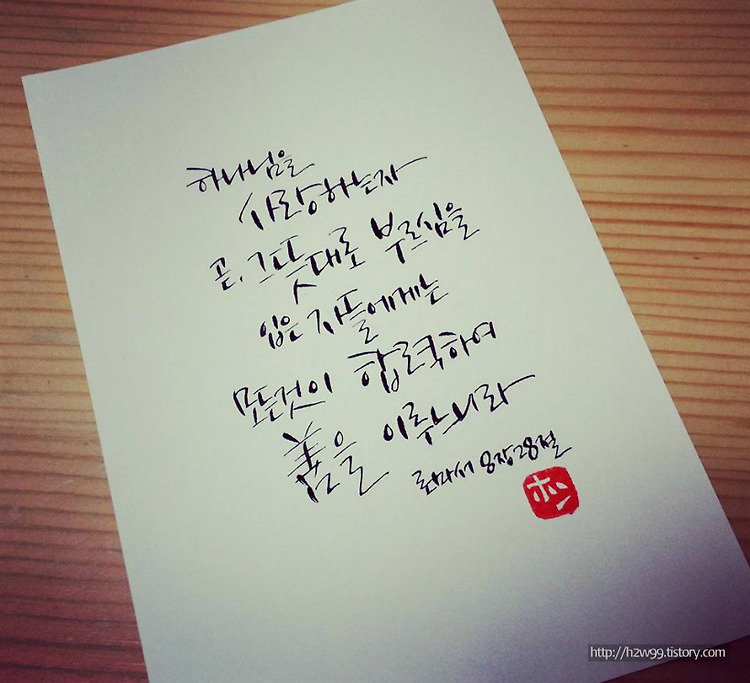 하나님을
사랑하는자
곧, 그뜻대로 부르심을
입은 자들에게는
모든것이 합력하여
善을 이루느니라
로마서 8장28절
http://h2w99.tistory.com